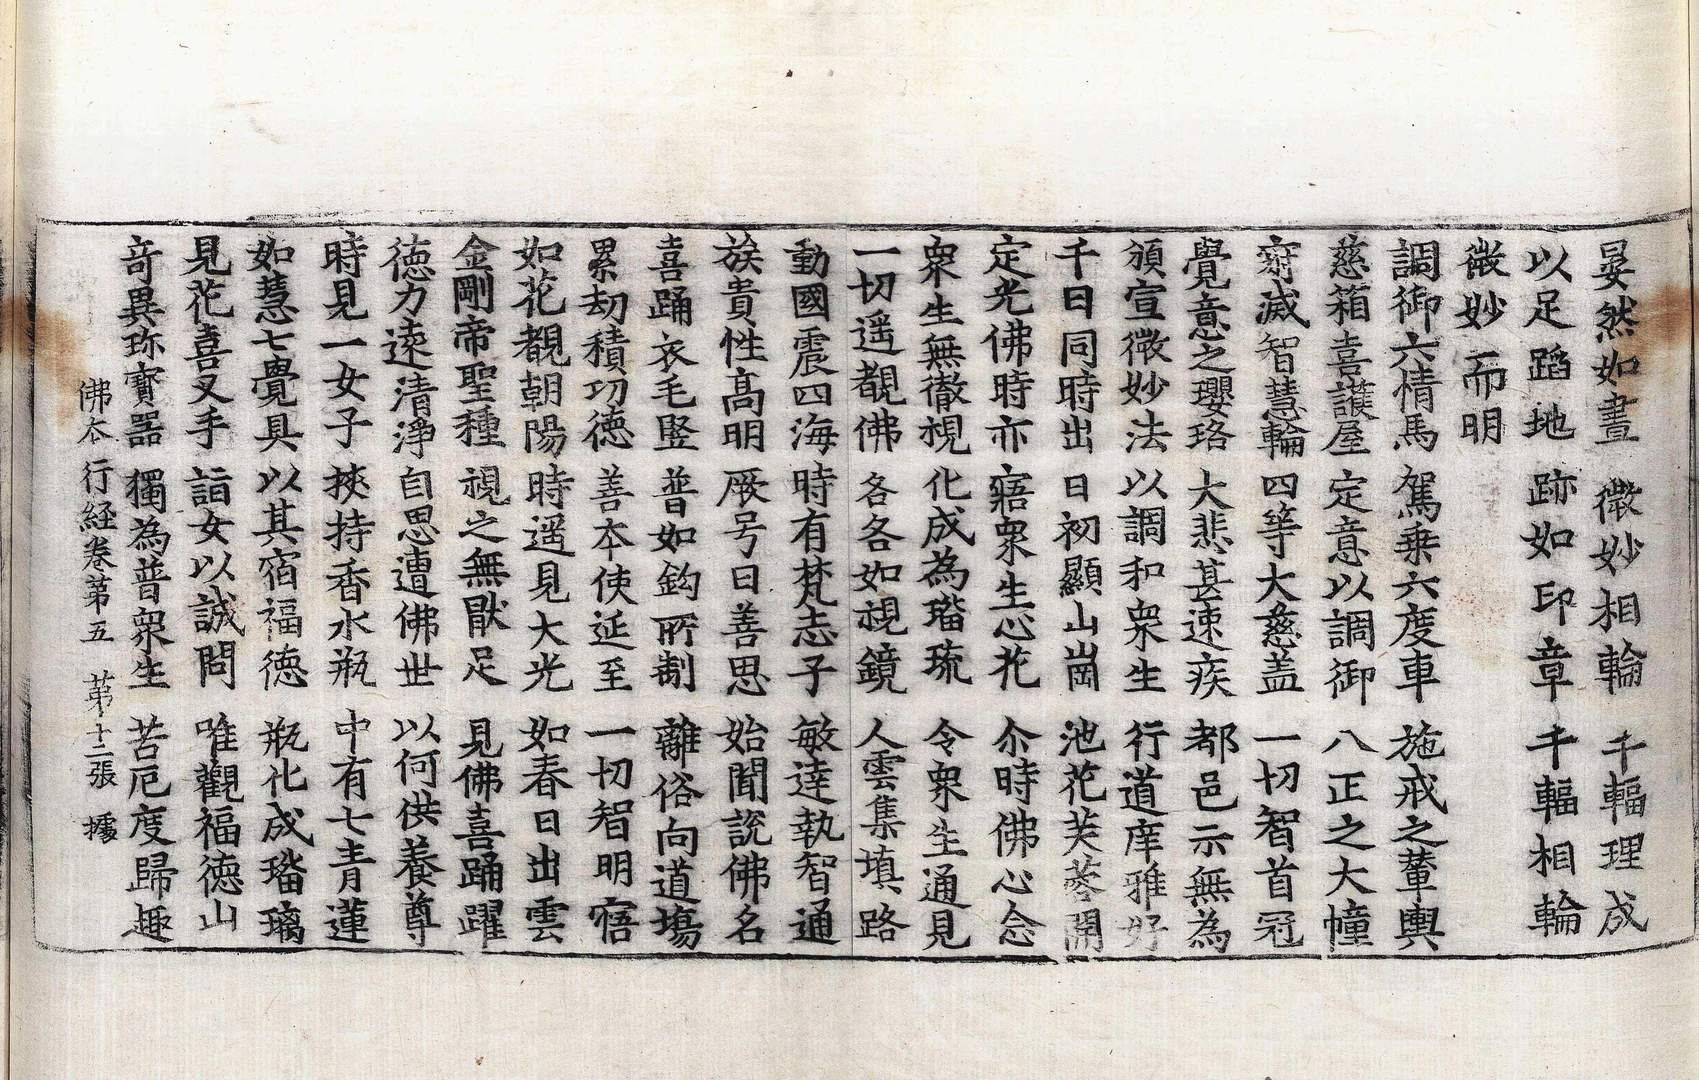 晏然如晝　微妙相輪　千輻理成
以足蹈地　跡如印章　千輻相輪
微妙而明
調御六情馬　駕乗六度車　施戒之輦輿
慈箱喜護屋　定意以調御　八正之大幢
寂滅智慧輪　四等大慈盖　一切智首冠
覺意之瓔珞　大悲甚速疾　都邑示無為
頒宣微妙法　以調和衆生　行道庠雅好
千日同時出　日初顯山崗　池花芙蓉開
定光佛時亦　寤衆生心花　尒時佛心念
衆生無徹視　化成為瑠琉　令衆生通見
一切遥覩佛　各各如視鏡　人雲集填路
動國震四海　時有梵志子　敏達執智通
族貴性高明　厥号曰善思　始聞說佛名
喜踊衣毛竪　普如鈎所制　離俗向道場
累劫積功德　善本使延至　一切智明寤
如花覩朝陽　時遥見大光　如春日出雲
金剛帝聖種　視之無猒足　見佛喜踊躍
德力遠清淨　自思遭佛世　以何供養尊
時見一女子　挾持香水瓶　中有七青蓮
如慧七覺具　以其宿福德　瓶化成瑠璃
見花喜叉手　詣女以誠問　唯觀福德山
奇異珎寶器　獨為普衆生　苦厄度歸趣
佛本行経卷苐五　苐十二張　㩀